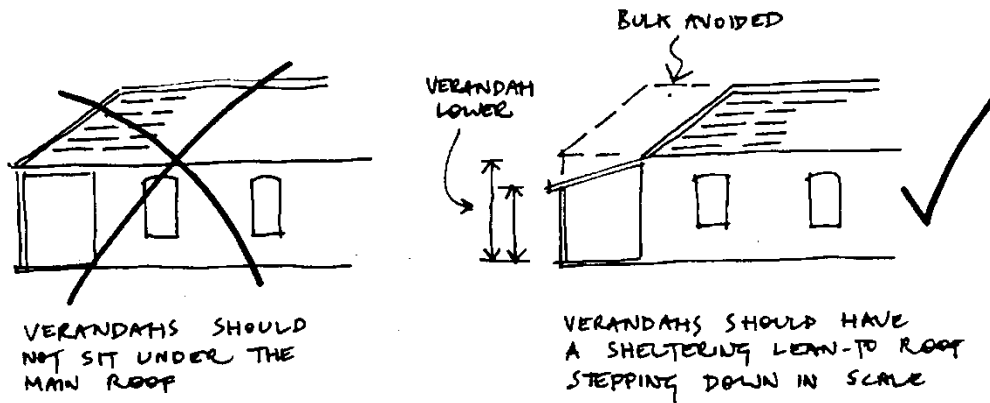 BULK AVOIDED
VERANDAH
LOWER
VERANDAHS SHOULD
NOT SIT UNDER THE
MAIN ROOF
VERANDAHS SHOULD HAVE
A SHELTERING LEAN-TO ROOF
STEPPING DOWN IN SCALE